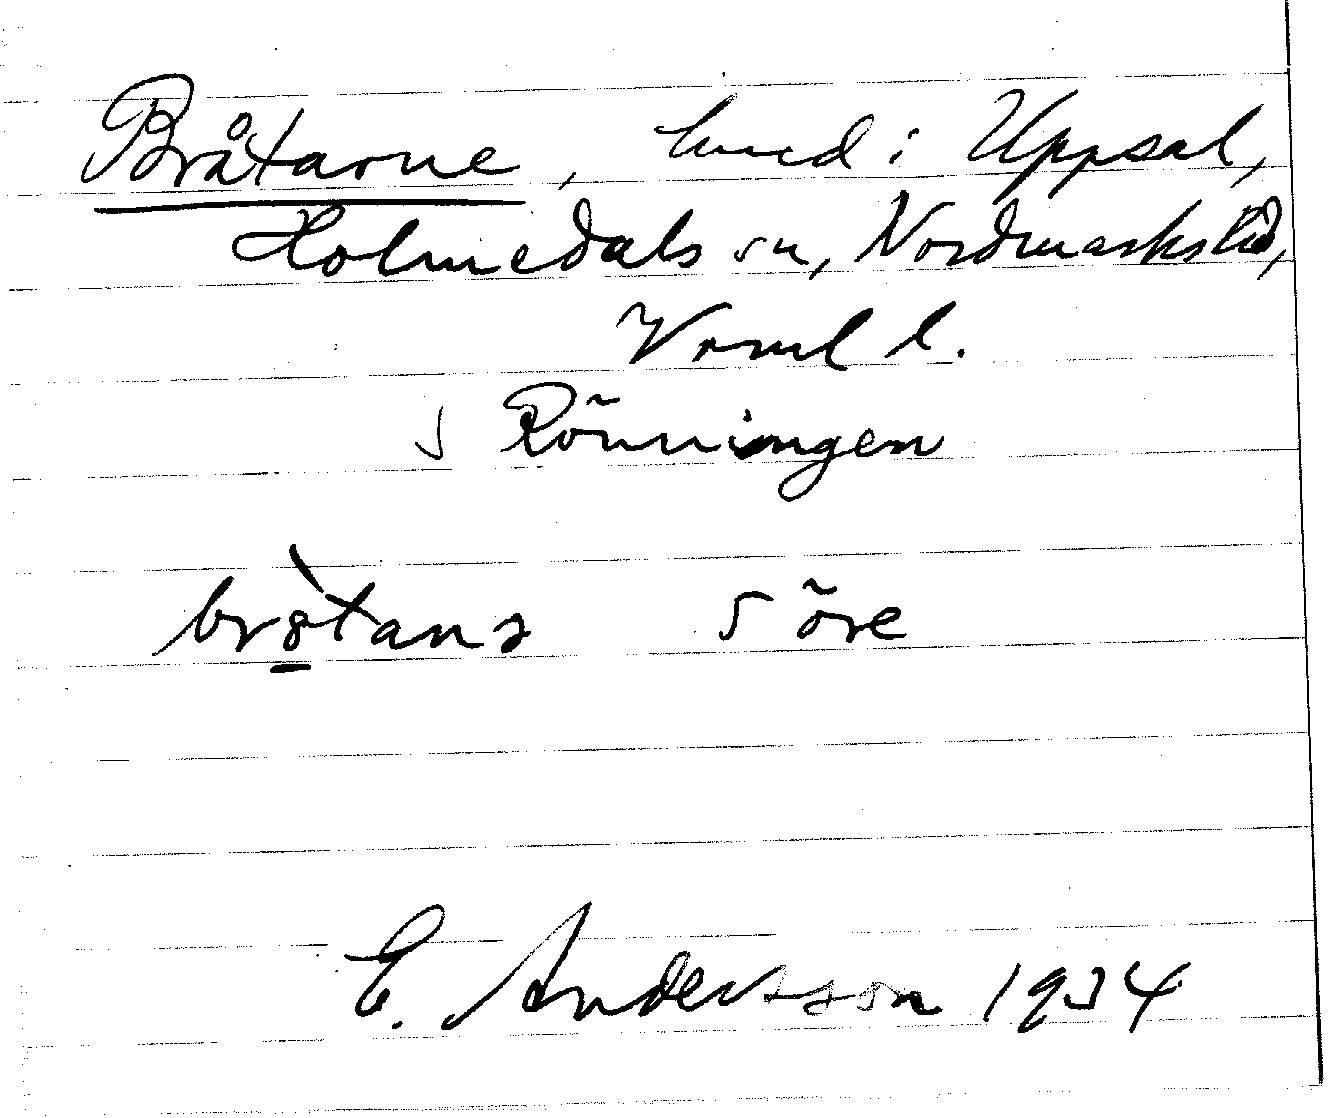 Bråtarne, lund i Uppsal,
Holmedals sn, Nordmarks hd,
Vrml l.
S Rönningen
brötanə S öre
E. Andersson 1934